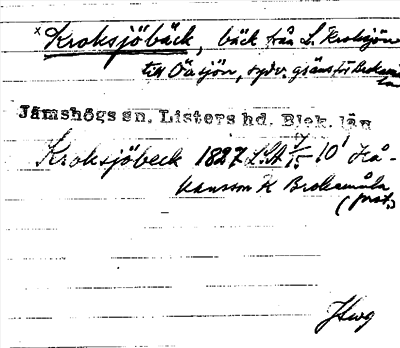 x Kroksjöbäck, bäck från L. Kroksjön
till Öasjön, sydv. gräns för Brokamåla
Jämshögs sn. Listers hd. Blek. län
Kroksjöbeck 1827 LSA 10 Hå-
kansson K Brokamåla
(prot.)
Hwg